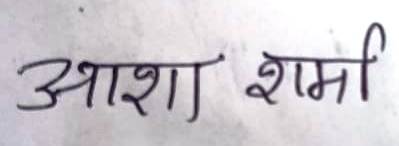 आशा शर्मा